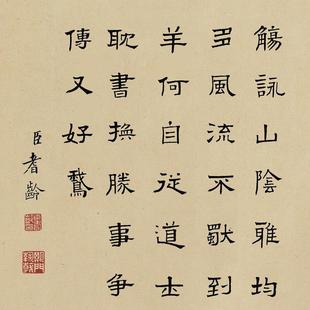 觴詠山陰雅均
多風流不到
羊何自從道士
耽書換勝事爭
傳又好鵞
臣耆齡